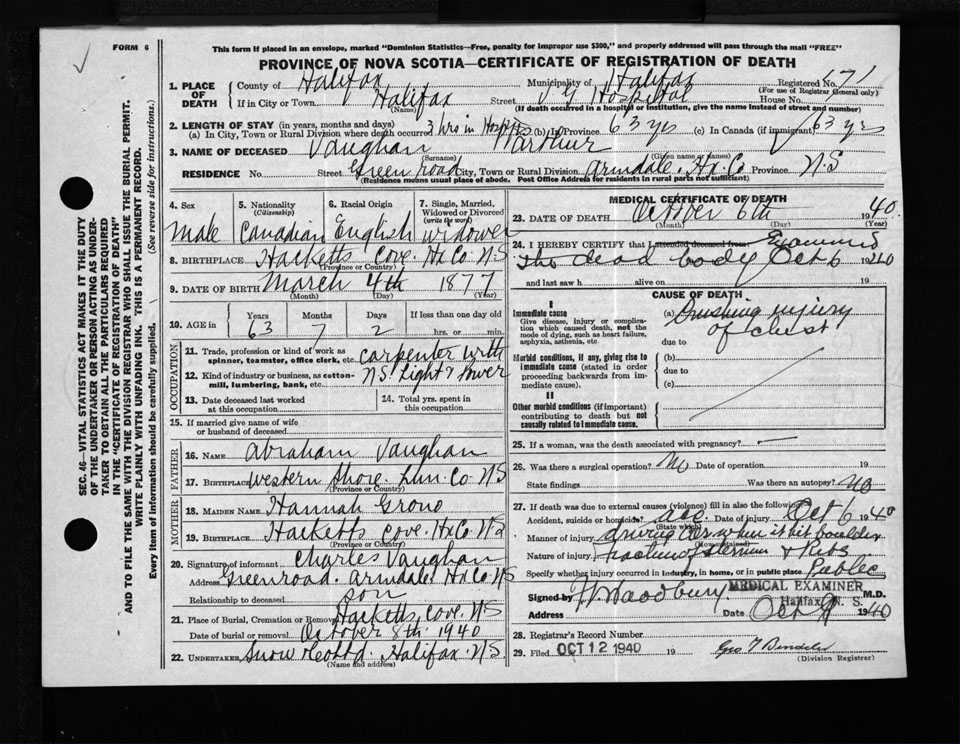 FORM 6
This form if placed in an envelope, marked "Dominion Statistics—Free, penalty for improper use $300," and properly addressed will pass through the mail "FREE"
PROVINCE OF NOVA SCOTIA—CERTIFICATE OF REGISTRATION OF DEATH
SEC. 46—VITAL STATISTICS ACT MAKES IT THE DUTY
OF THE UNDERTAKER OR PERSON ACTING AS UNDER-
TAKER TO OBTAIN ALL THE PARTICULARS REQUIRED
IN THE "CERTIFICATE OF REGISTRATION OF DEATH"
AND TO FILE THE SAME WITH THE DIVISION REGISTRAR WHO SHALL ISSUE THE BURIAL PERMIT.
WRITE PLAINLY WITH UNFADING INK. THIS IS A PERMANENT RECORD.
Every item of Information should be carefully supplied. (See reverse side for instructions.)
1. PLACE OF DEATH County of Halifax Municipality of Halifax Registered No. 871
(For use of Registrar General only)
If in City or Town Halifax Street V G Hospital House No.
(Name) (If death occurred in a hospital or institution, give the name instead of street and number)
2. LENGTH OF STAY (in years, months and days)
(a) In City, Town or Rural Division where death occurred 3 hrs in Hospital (b) In Province 63 yrs (c) In Canada (if immigrant) 63 yrs
3. NAME OF DECEASED Vaughan Warthur
(Surname) (Given name or names)
RESIDENCE No. Street Green road City, Town or Rural Division Armdale. Hx. Co Province N S
(Residence means usual place of abode. Post Office Address for residents in rural parts not sufficient)
4. Sex male
5. Nationality (Citizenship) Canadian
6. Racial Origin English
7. Single, Married, Widowed or Divorced (write the word) widower
8. BIRTHPLACE Hacketts Cove. Hx Co N.S
(Province or Country)
9. DATE OF BIRTH March 4th 1877
(Month) (Day) (Year)
10. AGE in Years 63 Months 7 Days 2 If less than one day old hrs. or min.
OCCUPATION
11. Trade, profession or kind of work as spinner, teamster, office clerk, etc. carpenter with
12. Kind of industry or business, as cotton-mill, lumbering, bank, etc. N.S. Light & Power
13. Date deceased last worked at this occupation
14. Total yrs. spent in this occupation
15. If married give name of wife or husband of deceased
FATHER
16. NAME Abraham Vaughan
17. BIRTHPLACE Western Shore. Lun. Co N.S
(Province or Country)
MOTHER
18. MAIDEN NAME Hannah Grono
19. BIRTHPLACE Hacketts Cove. Hx Co. N S
(Province or Country)
20. Signature of informant Charles Vaughan
Address Green road. Armdale Hx Co NS
Relationship to deceased son
21. Place of Burial, Cremation or Removal Hacketts Cove. N S
Date of burial or removal October 8th 1940
22. UNDERTAKER Snow & Co Ltd. Halifax N.S
(Name and address)
MEDICAL CERTIFICATE OF DEATH
23. DATE OF DEATH October 6th 1940
(Month) (Day) (Year)
24. I HEREBY CERTIFY that I attended deceased from Examined
the dead body Oct 6 1940
and last saw h alive on 19
CAUSE OF DEATH
I
Immediate cause
Give disease, injury or complication which caused death, not the mode of dying, such as heart failure, asphyxia, asthenia, etc.
(a) Crushing injury
of chest
due to
Morbid conditions, if any, giving rise to immediate cause (stated in order proceeding backwards from immediate cause).
(b)
due to
(c)
II
Other morbid conditions (if important) contributing to death but not causally related to immediate cause.
25. If a woman, was the death associated with pregnancy? —
26. Was there a surgical operation? No Date of operation 19
State findings Was there an autopsy? no
27. If death was due to external causes (violence) fill in also the following:
Accident, suicide or homicide? acc. Date of injury Oct 6 1940
(State which)
Manner of injury driving car when it hit boulder
(How sustained)
Nature of injury fracture of sternum & Ribs
Specify whether injury occurred in industry, in home, or in public place Public
Signed by Woodbury MEDICAL EXAMINER M.D.
Address Halifax, N. S. Date Oct 9 1940
28. Registrar's Record Number
29. Filed OCT 12 1940 19
(Division Registrar)